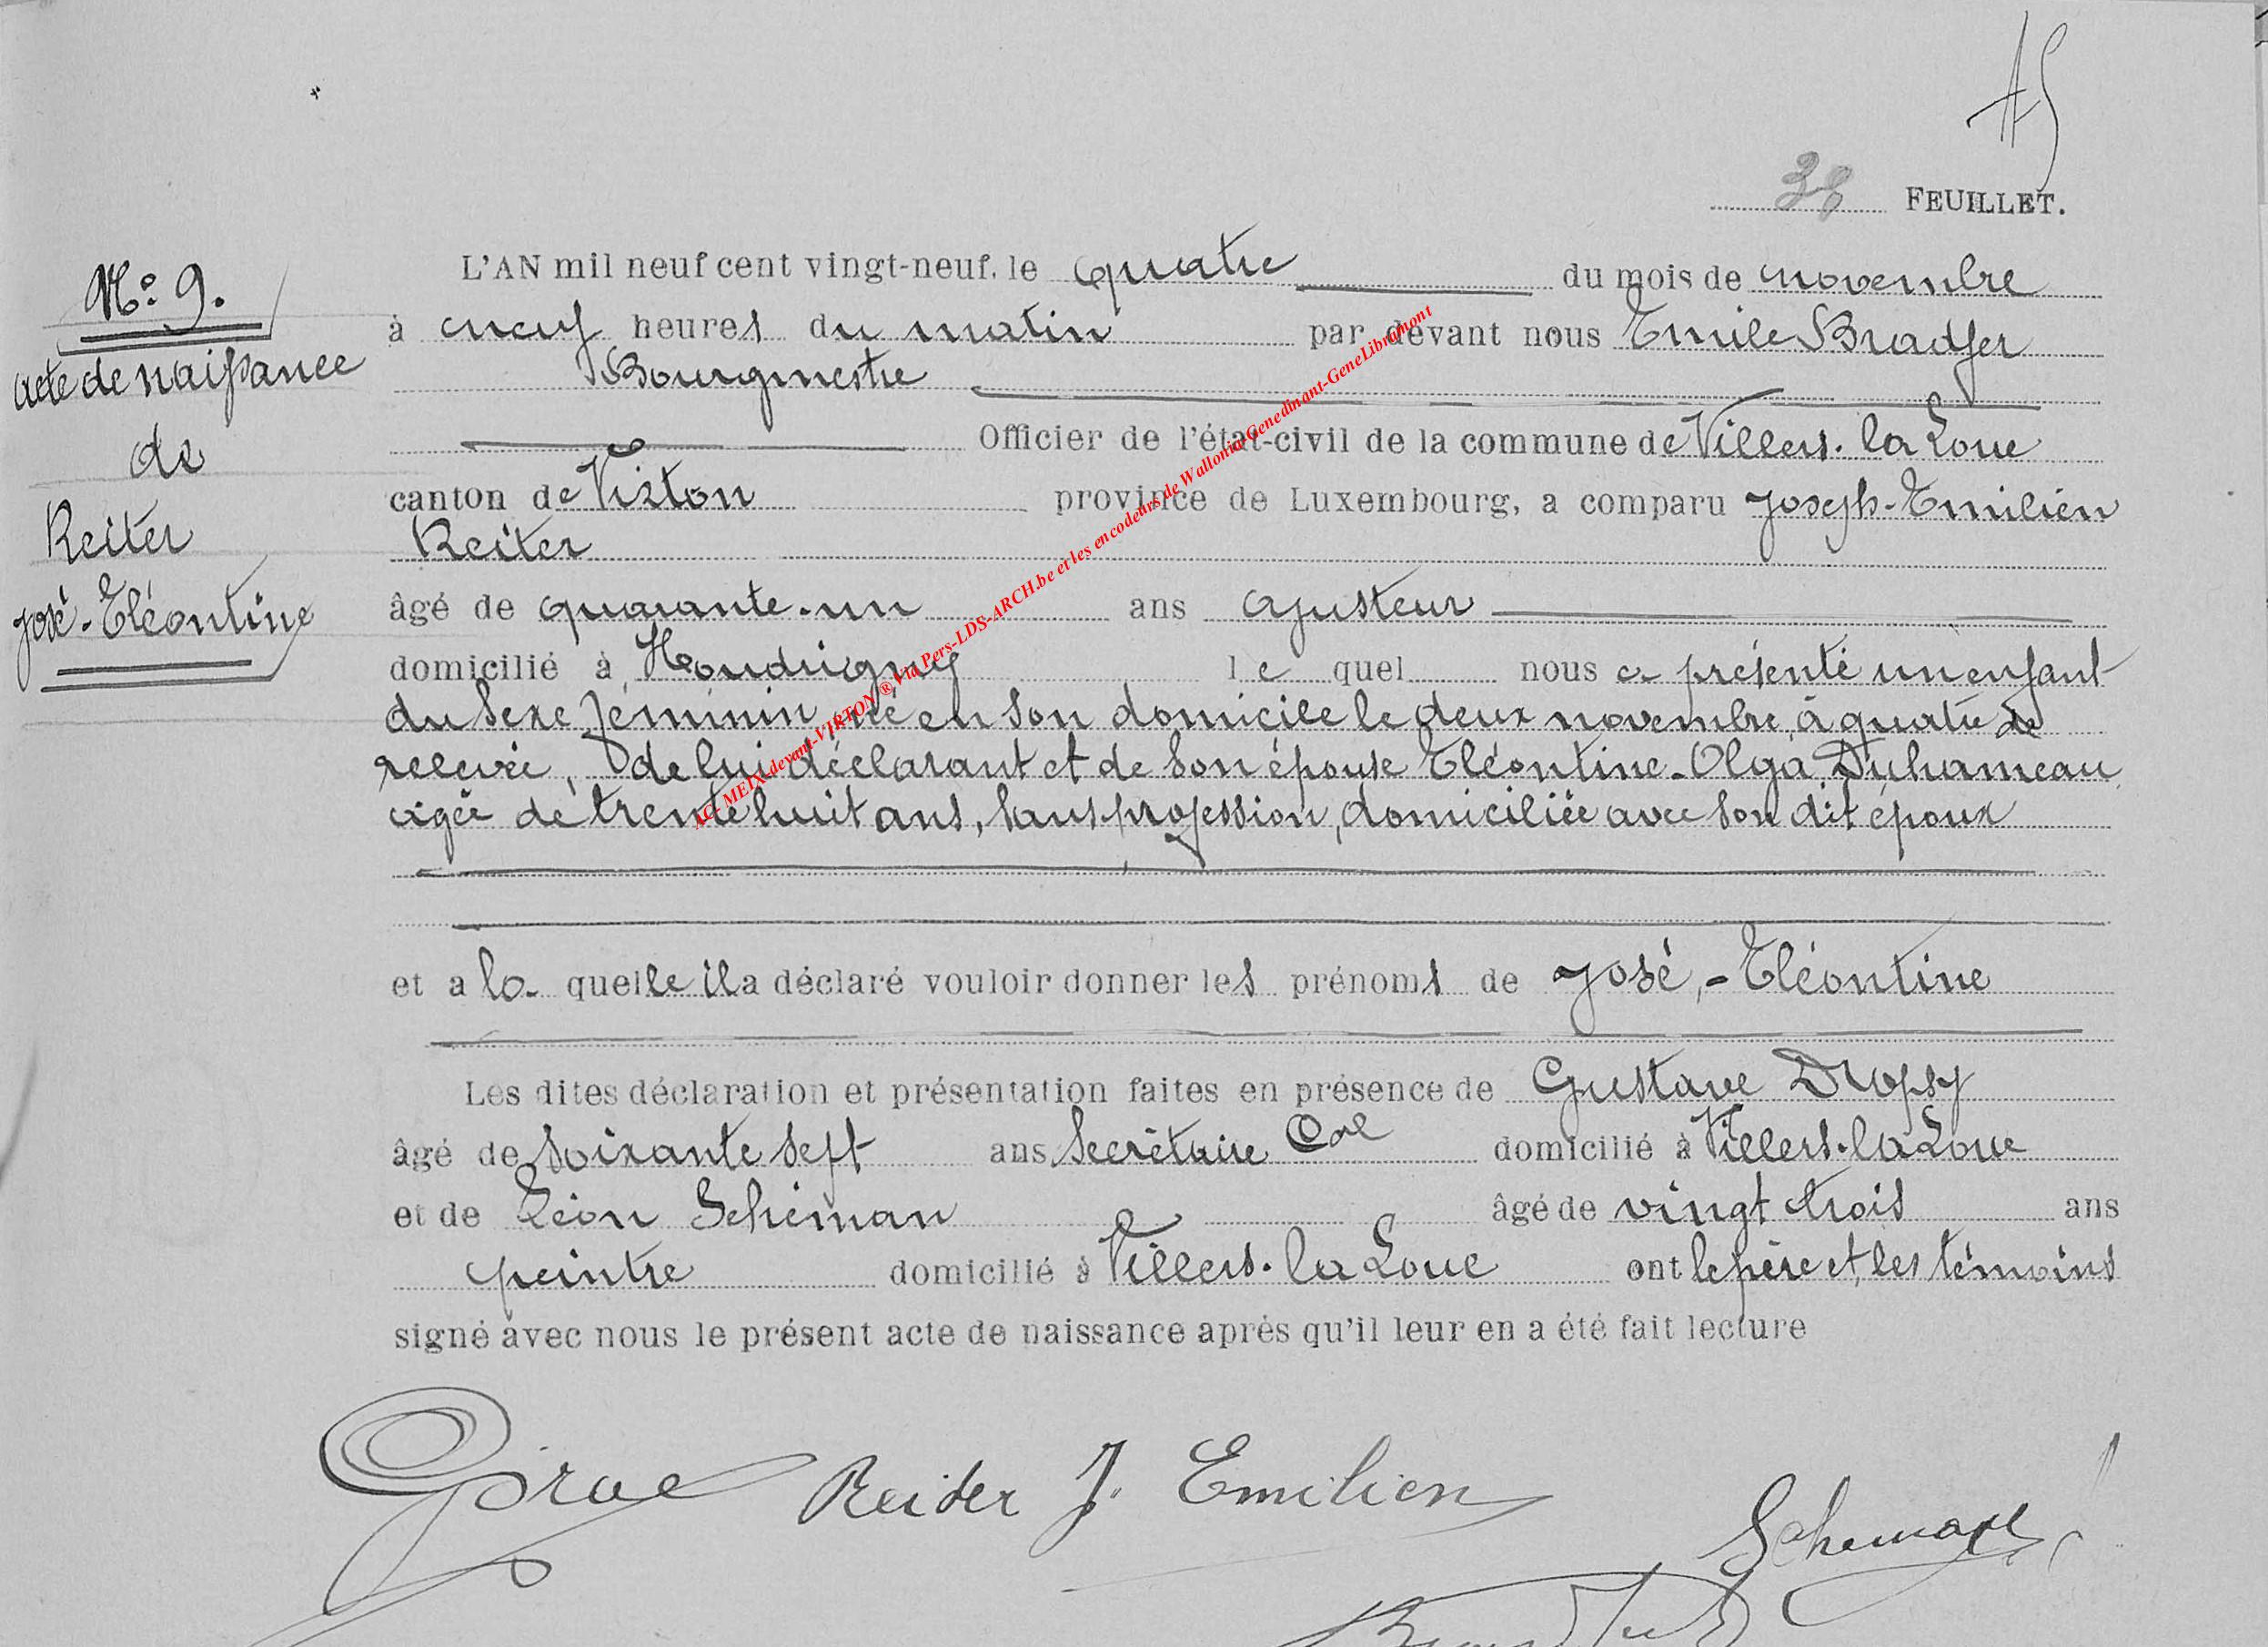 38 FEUILLET.
N° 9.
acte de naissance
de
Reiter
José-Eléontine
L'AN mil neuf cent vingt-neuf, le quatre du mois de novembre
à neuf heures du matin par devant nous Emile Bradfer
Bourgmestre
Officier de l'état-civil de la commune de Villers-la Loue
canton de Virton province de Luxembourg, a comparu Joseph-Emilien
Reiter
âgé de quarante-un ans ajusteur
domicilié à Houdrigny lequel nous a présenté un enfant
du sexe féminin, né en son domicile le deux novembre, à quatre de
relevée, de lui déclarant et de son épouse Eléontine-Olga Duhameau
agée de trente huit ans, sans profession, domiciliée avec son dit époux
et a la quelle il a déclaré vouloir donner les prénoms de José,-Eléontine
Les dites déclaration et présentation faites en présence de Gustave Dropsy
âgé de soixante sept ans Secrétaire Cal domicilié à Villers-la Loue
et de Léon Schéman âgé de vingt trois ans
peintre domicilié à Villers-la Loue ont le père et les témoins
signé avec nous le présent acte de naissance après qu'il leur en a été fait lecture
Reiter J. Emilien
Scheman
AC- MEIX-devant-VIRTON ® Via Pers-LDS-ARCH.be et les encodeurs de Wallonia-Genedinant-GeneLibramont